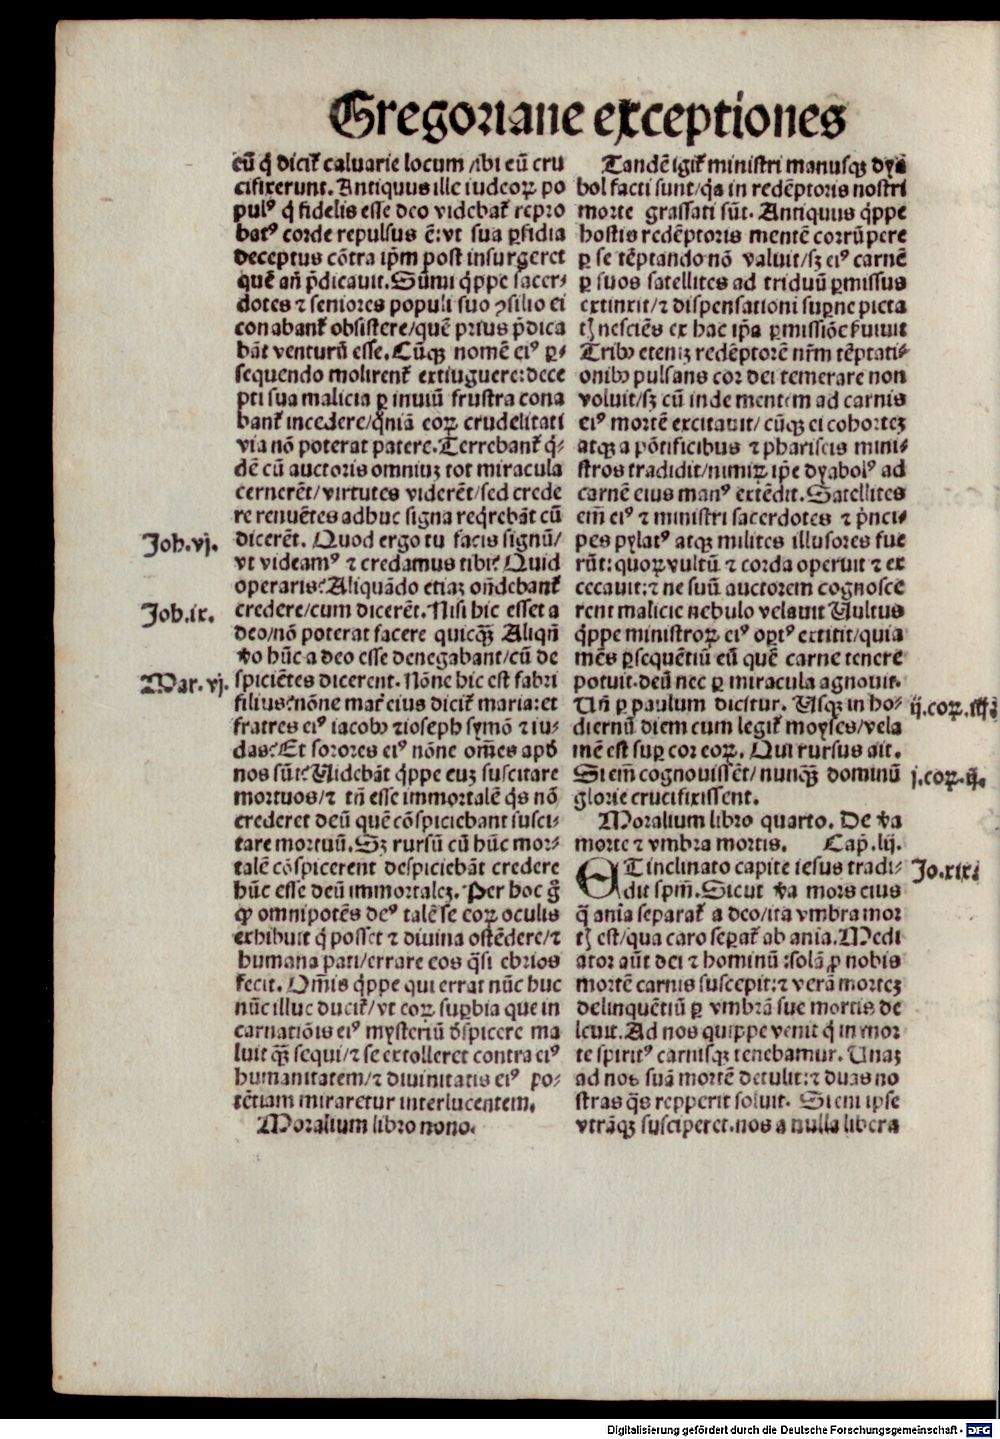 Gregoriane exceptiones
eū q̇ dicit̄ caluarie locum /ibi eū cru
cifixerunt. Antiquus ille iudeoꝝ po
pulꝰ q̇ fidelis esse deo videbat̄ repro
batꝰ corde repulsus ē: vt sua ꝑfidia
deceptus cōtra ip̄m post insurgeret
quē añ p̄dicauit. Sūmi q̇ppe sacer⸗
dotes ⁊ seniores populi suo ꝯsilio ei
conabant̄ obsistere/quē prius p̄dica
bāt venturū esse. Cūqꝫ nomē eiꝰ ꝑ⸗
sequendo molirent̄ extiuguere: dece
pti sua malicia ꝑ inuiū frustra cona
bant̄ incedere/qm̄iā eoꝝ crudelitati
via nō poterat patere. Terrebant̄ q̇⸗
dē cū auctoris omniuꝫ tot miracula
cernerēt/virtutes viderēt/sed crede
re renuētes adhuc signa reqrebāt cū
Joh.vj.
dicerēt. Quod ergo tu facis signū/
vt videamꝰ ⁊ credamus tibi? Quid
operaris? Aliquādo etiaꝫ oñdebant̄
Joh.ix.
credere/cum dicerēt. Nisi hic esset a
deo/nō poterat facere quicqꝫ̄ Aliqñ
v̄o hūc a deo esse denegabant/cū de
Mar.vj.
spiciētes dicerent. Nōne hic est fabri
filius? nōne mat̄ eius dicit̄ maria: et
fratres eiꝰ iacobꝰ ⁊ ioseph symō ⁊ iu⸗
das? Et sorores eiꝰ nōne om̄es apd̄
nos sūt? Uidebāt q̇ppe euꝫ suscitare
mortuos/⁊ tñ esse immortalē q̇s nō
crederet deū quē cōspiciebant susci⸗
tare mortuū. Sꝫ rursū cū hūc mor⸗
talē cōspicerent despiciebāt credere
hūc esse deū immortaleꝫ. Per hoc g̊
ꝙ omnipotēs deꝰ talē se eoꝝ oculis
exhibuit q̇ posset ⁊ diuina ostēdere/⁊
humana pati/errare eos q̇si ebrios
fecit. Om̄is q̇ppe qui errat nūc huc
nūc illuc ducit̄/vt eoꝝ suꝑbia que in
carnatiōis eiꝰ mysteriū d̄spicere ma
luit qꝫ̄ sequi/⁊ se extolleret contra eiꝰ
humanitatem/⁊ diuinitatis eiꝰ po⸗
tētiam miraretur interlucentem.
Moralium libro nono.
Tandē igit̄ ministri manusqꝫ dya
boli facti sunt/q̇a in redēptoris nostri
morte grassati sūt. Antiquus q̇ppe
hostis redēptoris mentē corrūpere
ꝑ se tēptando nō valuit/sꝫ eiꝰ carnē
ꝑ suos satellites ad triduū ꝑmissus
extinxit/⁊ dispensationi suꝑne pieta
tꝭ nesciēs ex hac ip̄a ꝑmissiōe ẜuiuit
Tribꝰ eteniꝫ redēptorē nr̄m tēptati⸗
onibꝰ pulsans cor dei temerare non
voluit/sꝫ cū inde mentem ad carnis
eiꝰ mortē excitauit/ cūqꝫ ei cohorteꝫ
atqꝫ a pōtificibus ⁊ phariseis mini⸗
stros tradidit/nimiꝝ ip̄e dyabolꝰ ad
carnē eius manꝰ extēdit. Satellites
em̄ eiꝰ ⁊ ministri sacerdotes ⁊ p̄nci⸗
pes pylatꝰ atqꝫ milites illusores fue
rūt: quoꝝ vultū ⁊ corda operuit ⁊ ex
cecauit: ⁊ ne suū auctorem cognosce
rent malicie nebulo velauit Uultus
q̇ppe ministroꝝ eiꝰ oꝑtꝰ extitit/quia
mēs ꝑsequētiū eū quē carne tenere
potuit. deū nec ꝑ miracula agnouit.
ij.coꝝ.iij.
Uñ ꝑ paulum dicitur. Usqꝫ in ho⸗
diernū diem cum legit̄ moyses/vela
mē est suꝑ cor eoꝝ. Qui rursus ait.
j.coꝝ.ij.
Si em̄ cognouissēt/ nunqꝫ̄ dominū
glorie crucifixissent.
Moralium libro quarto. De v̄a
morte ⁊ vmbra mortis. Cap̄.lij.
Jo.xix.
ET inclinato capite iesus tradi⸗
dit spm̄. Sicut v̄a mors eius
q̄ ania separat̄ a deo/ita vmbra mor
tꝭ est/qua caro seꝑat̄ ab ania. Medi
ator aūt dei ⁊ hominū : solā ꝓ nobis
mortē carnis suscepit: ⁊ verā morteꝫ
delinquētiū ꝑ vmbrā sue mortis de
leuit. Ad nos quippe venit q̇ in mor
te spiritꝰ carnisqꝫ tenebamur. Unaꝫ
ad nos suā mortē detulit: ⁊ duas no
stras q̇s repperit soluit. Si eni ipse
vtrāqꝫ susciperet. nos a nulla libera
Digitalisierung gefördert durch die Deutsche Forschungsgemeinschaft - DFG